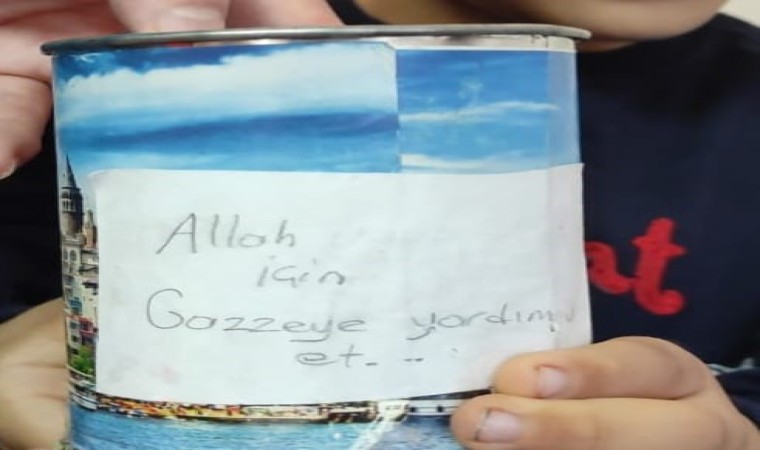 Allah
için
Gazzeye yardım
et. ..
at